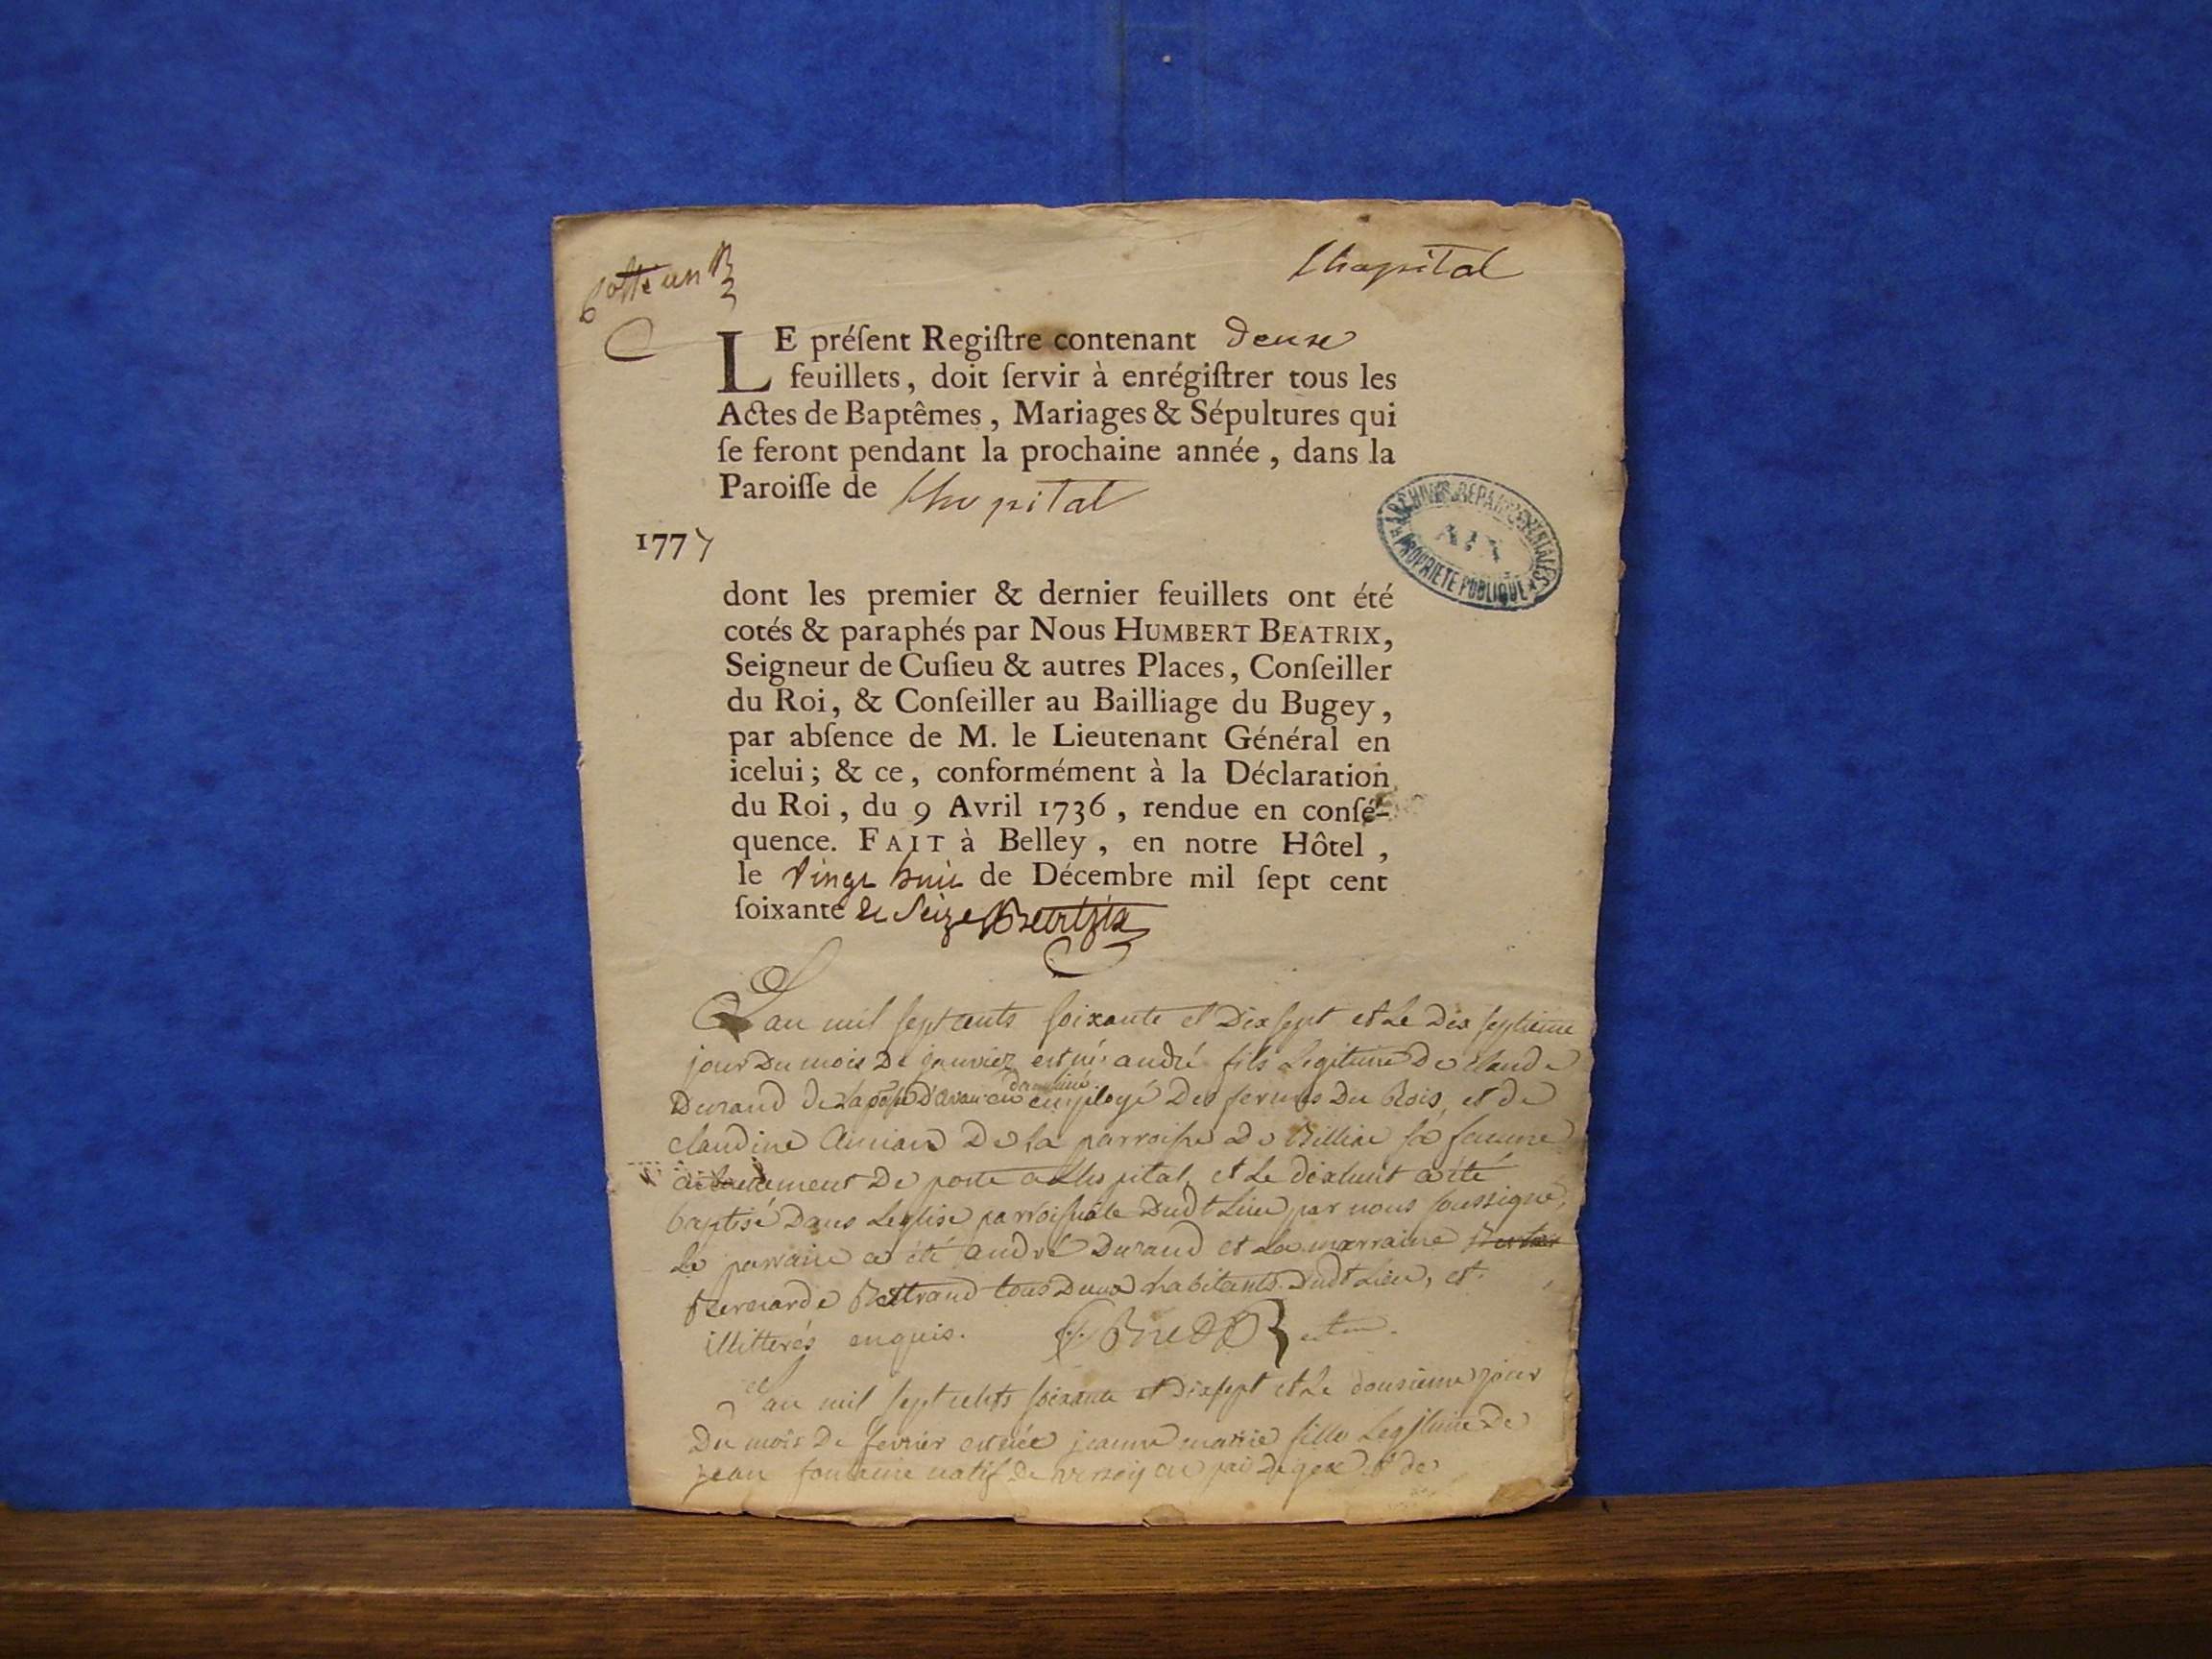 Lhopital
LE préſent Regiſtre contenant deux
feuillets, doit ſervir à enrégiſtrer tous les
Actes de Baptêmes, Mariages & Sépultures qui
ſe feront pendant la prochaine année, dans la
Paroiſſe de Lhopital
1777
ARCHIVES DEPARTEMENTALES
AIN
PROPRIETE PUBLIQUE
dont les premier & dernier feuillets ont été
cotés & paraphés par Nous HUMBERT BEATRIX,
Seigneur de Cuſieu & autres Places, Conſeiller
du Roi, & Conſeiller au Bailliage du Bugey,
par abſence de M. le Lieutenant Général en
icelui; & ce, conformément à la Déclaration
du Roi, du 9 Avril 1736, rendue en conſé-
quence. FAIT à Belley, en notre Hôtel,
le vingt huit de Décembre mil ſept cent
ſoixante et Seize Beatrix
L'an mil sept cents soixante et Dix sept et Le Dix septieme
jour Du mois De janvier est né andré fils Legitime De claude
Durand De employé Des fermes Du Rois, et de
claudine De La parroisse De Billiat sa femme
De poste a Lhopital, et Le dixhuit a été
baptisé Dans Leglise parroissiale Dudt Lieu par nous soussigné,
Le parrain a été andré Durand et La marraine
Bernarde Bertrand tous Deux habitants Dudt Lieu, et
illitterés enquis.
L'an mil sept cents soixante et Dix sept et Le douzieme jour
Du mois De fevrier est née jeanne marie fille Legitime De
jean fontaine natif De versoy au pais De gex et de